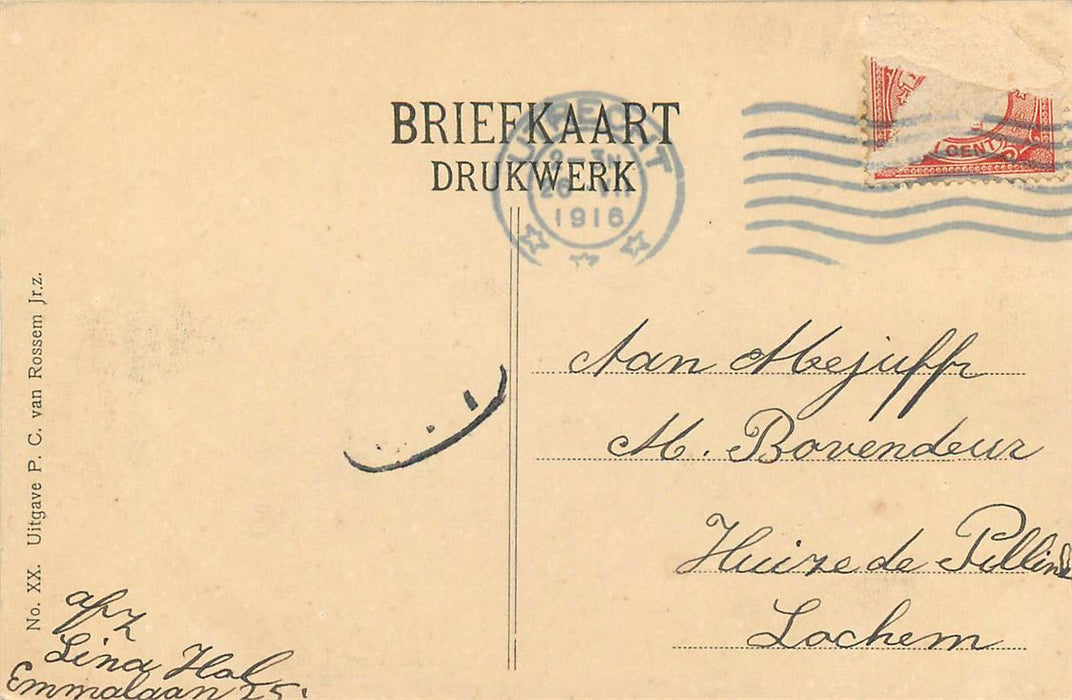 BRIEFKAART
DRUKWERK
UTRECHT
1916
CENT
Aan Mejuffr
M. Bovendeur
Huize de
Lochem
No. XX. Uitgave P. C. van Rossem Jr.z.
afz
Lina Hol
Emmalaan 25.